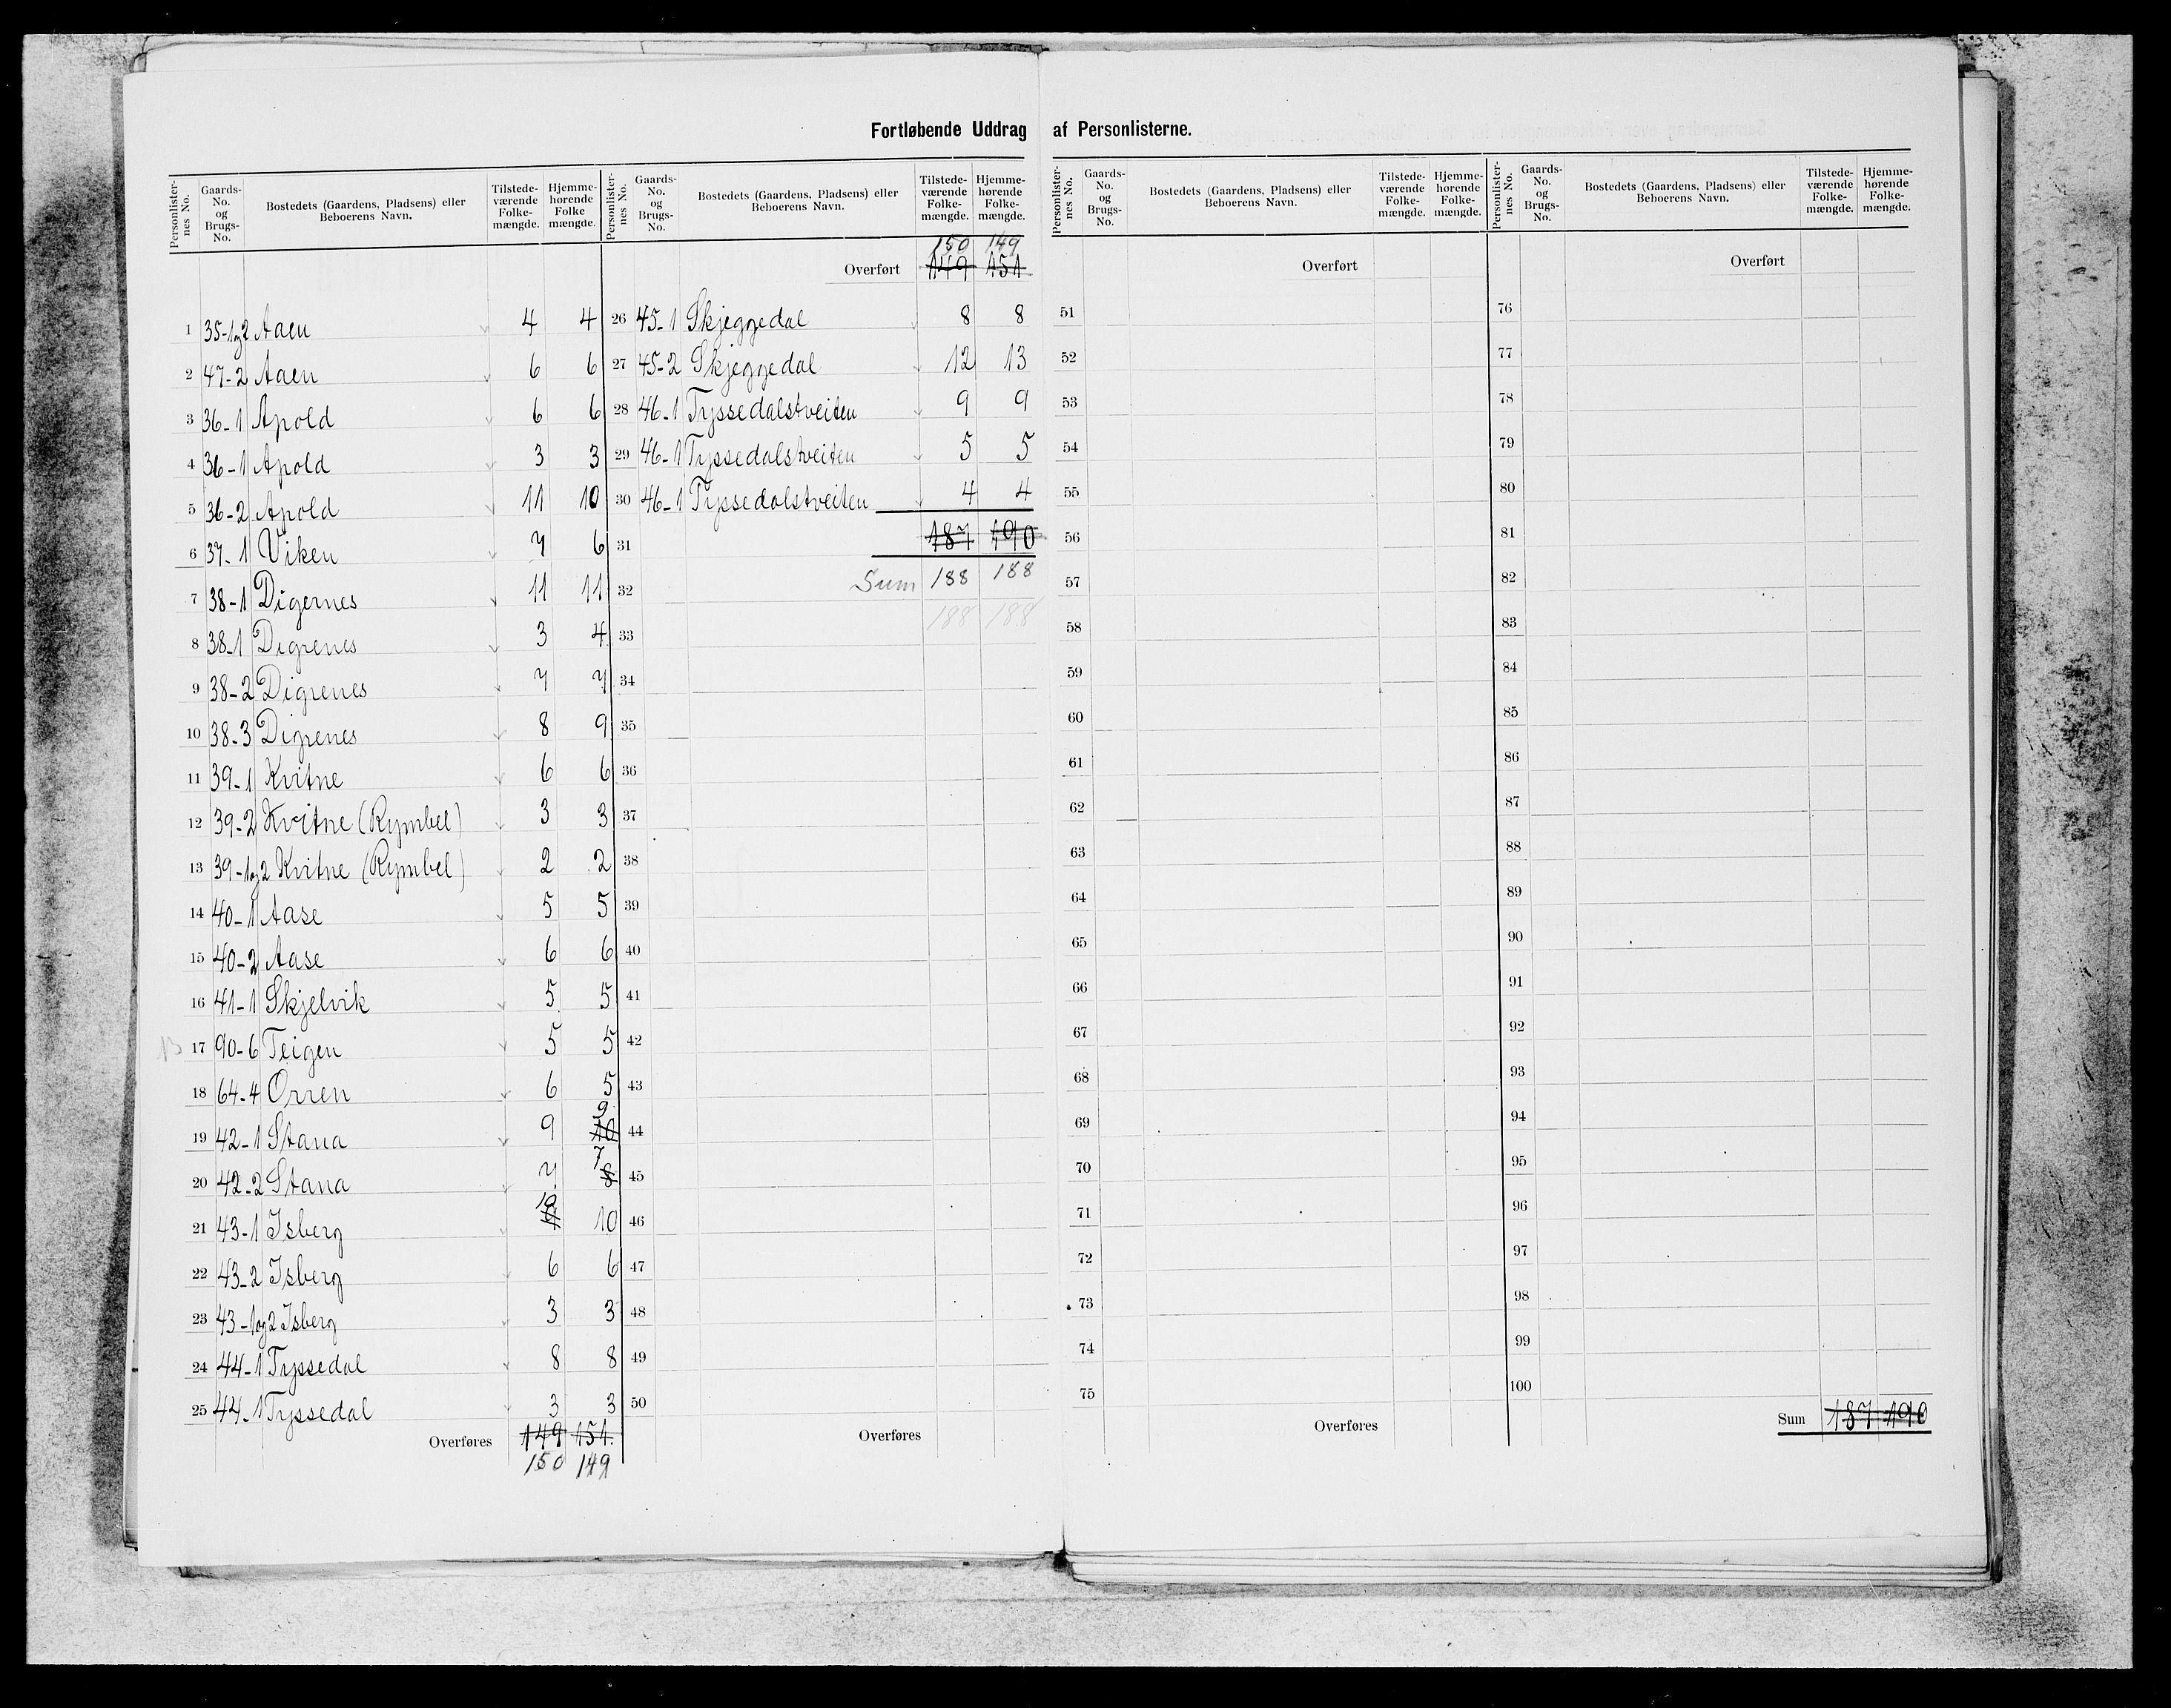 Fortløbende Uddrag af Personlisterne.
Personlisternes No. | Gaards-No. og Brugs-No. | Bostedets (Gaardens, Pladsens) eller Beboerens Navn. | Tilstedeværende Folkemængde. | Hjemmehørende Folkemængde.
1 35-1og2 Aaen 4 4
2 47-2 Aaen 6 6
3 36-1 Apold 6 6
4 36-1 Apold 3 3
5 36-2 Apold 11 10
6 37-1 Viken 7 6
7 38-1 Digernes 11 11
8 38-1 Digrenes 3 4
9 38-2 Digrenes 7 7
10 38-3 Digrenes 8 9
11 39-1 Kvitne 6 6
12 39-2 Kvitne (Rymbel) 3 3
13 39-1og2 Kvitne (Rymbel) 2 2
14 40-1 Aase 5 5
15 40-2 Aase 6 6
16 41-1 Skjelvik 5 5
17 90-6 Teigen 5 5
18 64-4 Orren 6 5
19 42-1 Stana 9 10 9
20 42-2 Stana 7 8 7
21 43-1 Isberg 10 10
22 43-2 Isberg 6 6
23 43-1og2 Isberg 3 3
24 44-1 Tyssedal 8 8
25 44-1 Tyssedal 3 3
Overføres 149 151.
150 149
Personlisternes No. | Gaards-No. og Brugs-No. | Bostedets (Gaardens, Pladsens) eller Beboerens Navn. | Tilstedeværende Folkemængde. | Hjemmehørende Folkemængde.
150 149
Overført 149 151
26 45-1 Skjeggedal 8 8
27 45-2 Skjeggedal 12 13
28 46-1 Tyssedalstveiten 9 9
29 46-1 Tyssedalstveiten 5 5
30 46-1 Tyssedalstveiten 4 4
31 187 190
32 Sum 188 188
33 188 188
34
35
36
37
38
39
40
41
42
43
44
45
46
47
48
49
50
Overføres
Personlisternes No. | Gaards-No. og Brugs-No. | Bostedets (Gaardens, Pladsens) eller Beboerens Navn. | Tilstedeværende Folkemængde. | Hjemmehørende Folkemængde.
Overført
51
52
53
54
55
56
57
58
59
60
61
62
63
64
65
66
67
68
69
70
71
72
73
74
75
Overføres
Personlisternes No. | Gaards-No. og Brugs-No. | Bostedets (Gaardens, Pladsens) eller Beboerens Navn. | Tilstedeværende Folkemængde. | Hjemmehørende Folkemængde.
Overført
76
77
78
79
80
81
82
83
84
85
86
87
88
89
90
91
92
93
94
95
96
97
98
99
100
Sum 187 190